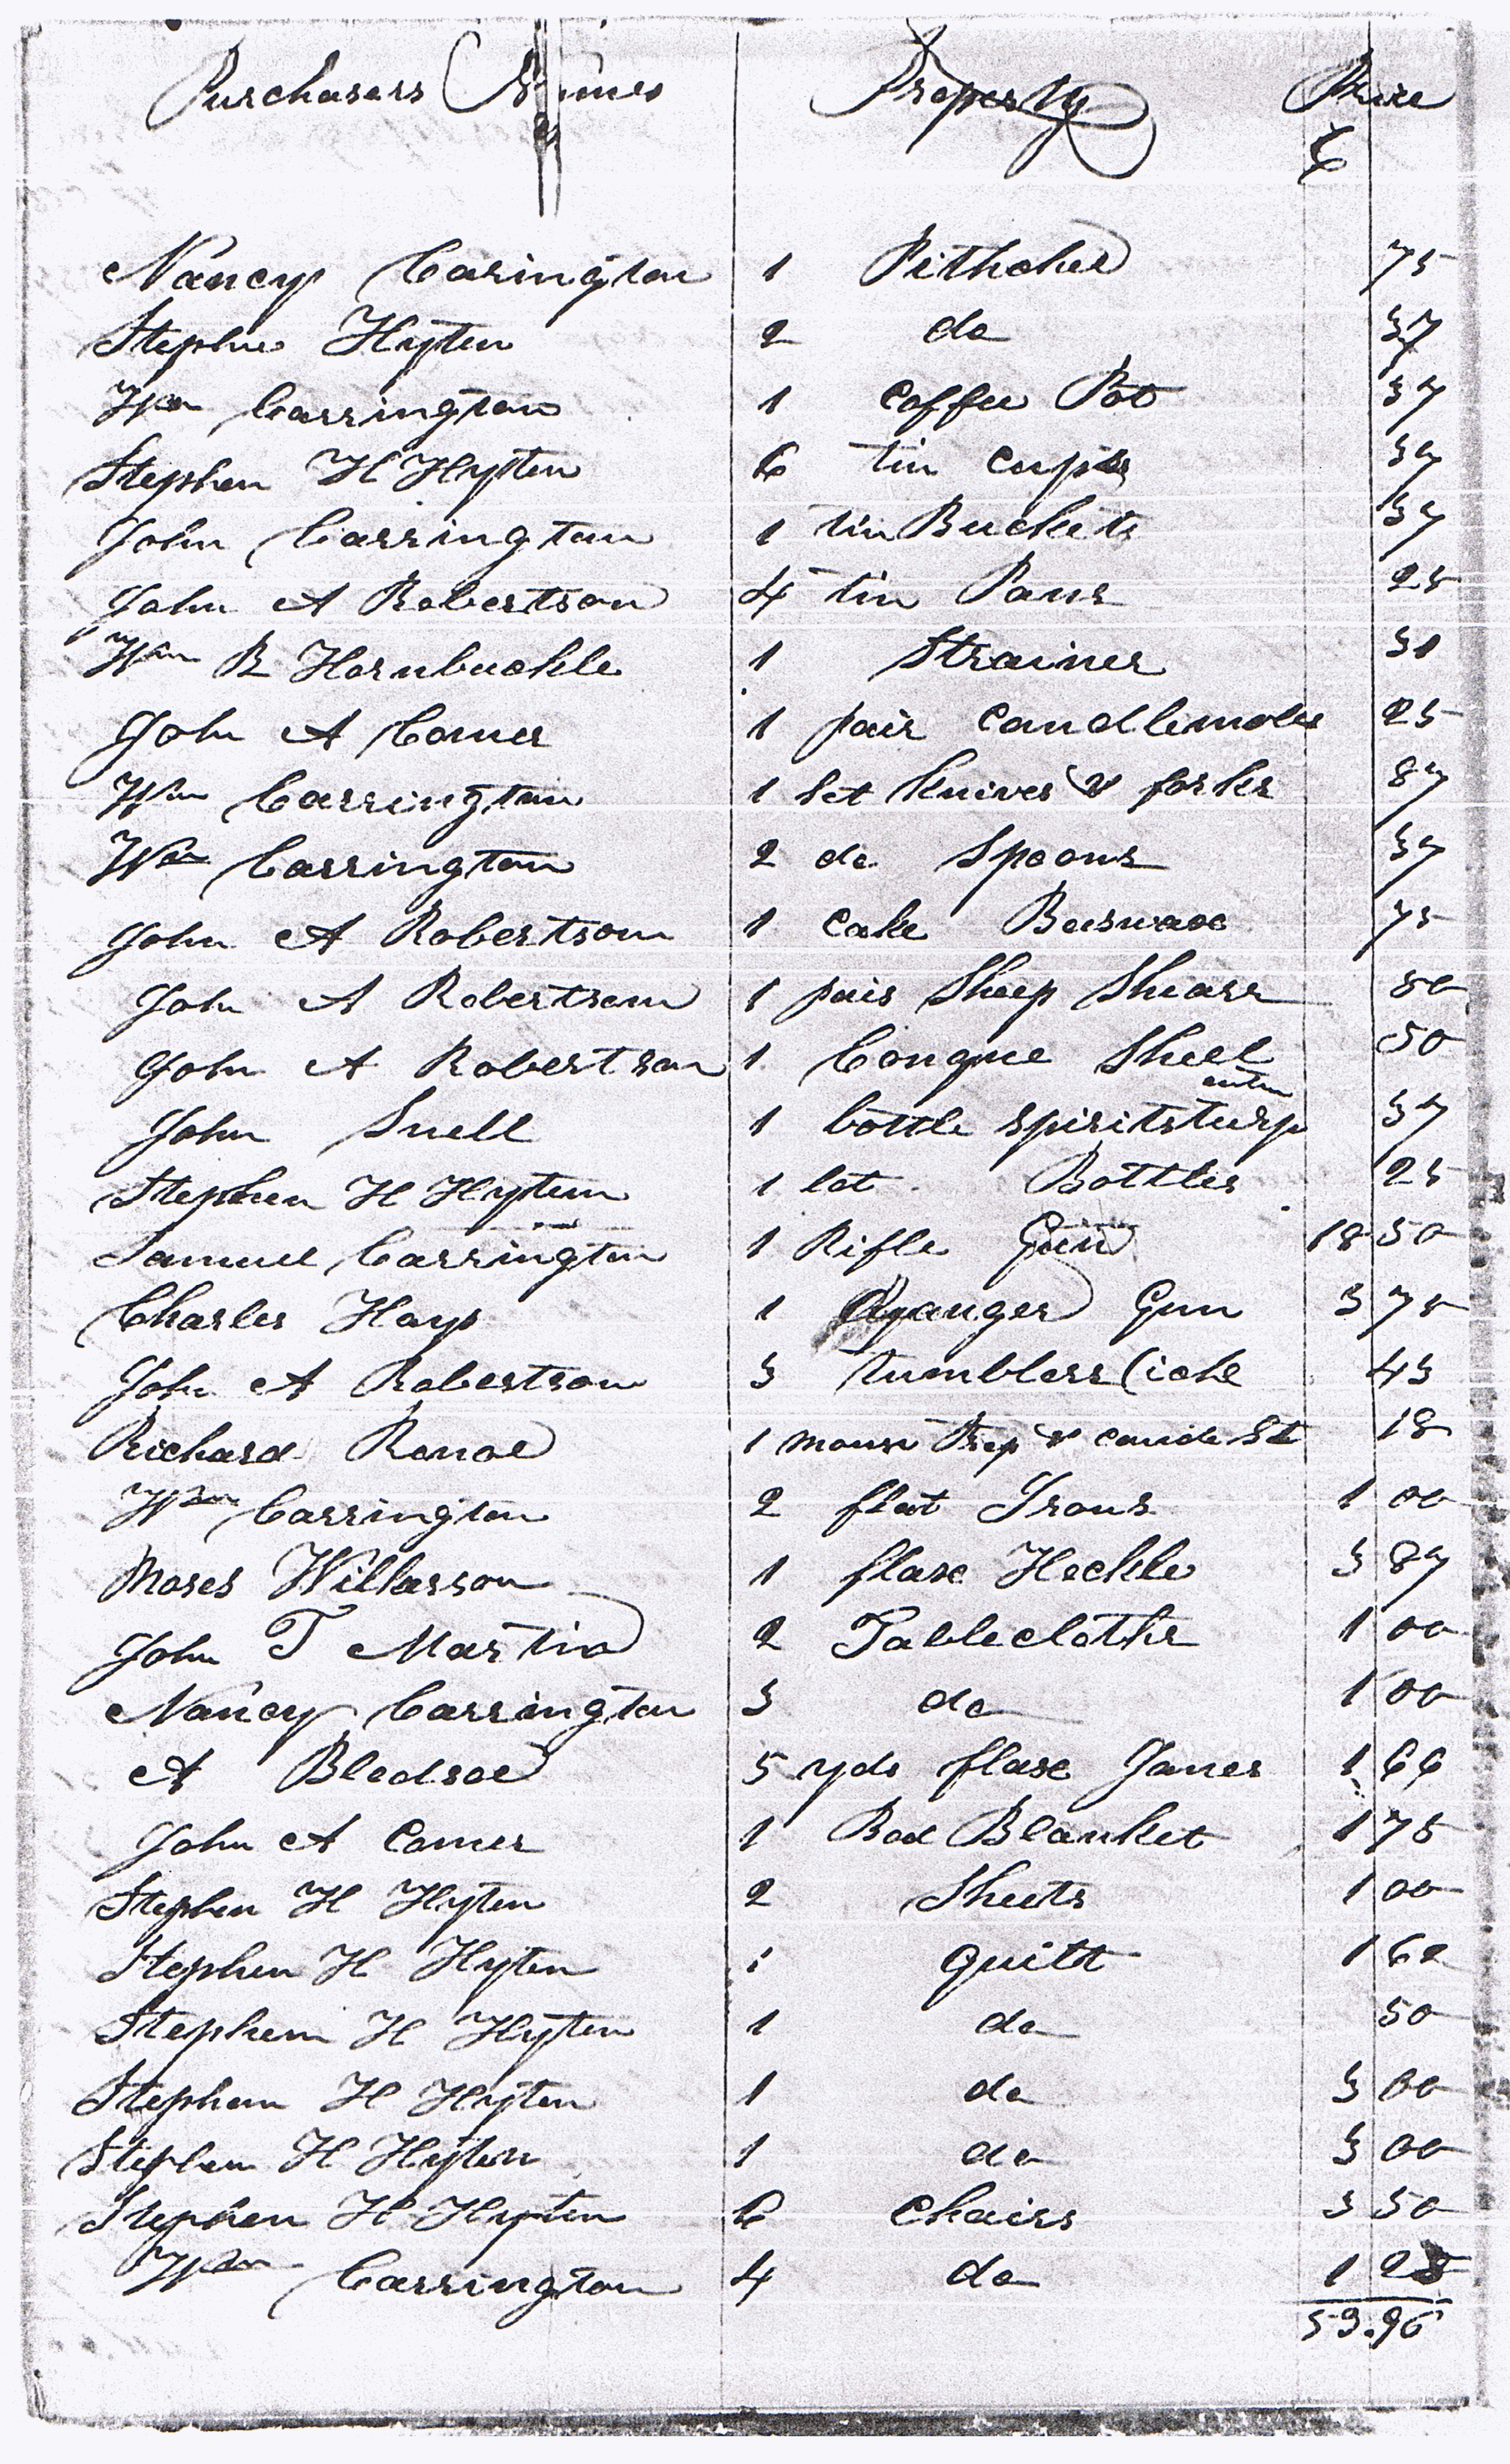 Purchasers Names Property Price
Nancy Carington 1 Pithcher 75
Stephn Hyten 2 do 37
Wm Carrington 1 Coffee Pot 37
Stephen H Hyten 6 tin cups 37
John Carrington 1 tin Buckets 37
John A Robertson 4 tin Pans 25
Wm R Hornbuckle 1 Strainer 31
John A Comer 1 pair Candlemoles 25
Wm Carrington 1 Set Knives & forks 87
Wm Carrington 2 do Spoons 37
John A Robertson 1 Cake Beeswax 75
John A Robertson 1 pair Sheep Shears 50
John A Robertson 1 Conque Shell 50
John Snell 1 bottle spirits turpentin 37
Stephen H Hyten 1 lot Bottles 25
Samuel Carrington 1 Rifle Gun 18 50
Charles Hays 1 Gun 3 75
John A Robertson 3 tumblers 43
Richard Renoe 1 mouse Trap & 18
Wm Carrington 2 flat Irons 1 00
Moses Wilkerson 1 flax Heckle 3 87
John T Martin 2 Tablecloths 1 00
Nancy Carrington 3 do 1 00
A Bledsoe 5 yds flax Janes 1 66
John A Comer 1 Bed Blanket 1 75
Stephen H Hyten 2 Sheets 1 00
Stephen H Hyten 1 Quilt 1 62
Stephen H Hyten 1 do 50
Stephen H Hyten 1 do 3 00
Stephen H Hyten 1 do 3 00
Stephen H Hyten 6 Chairs 3 50
Wm Carrington 4 do 1 25
53.96